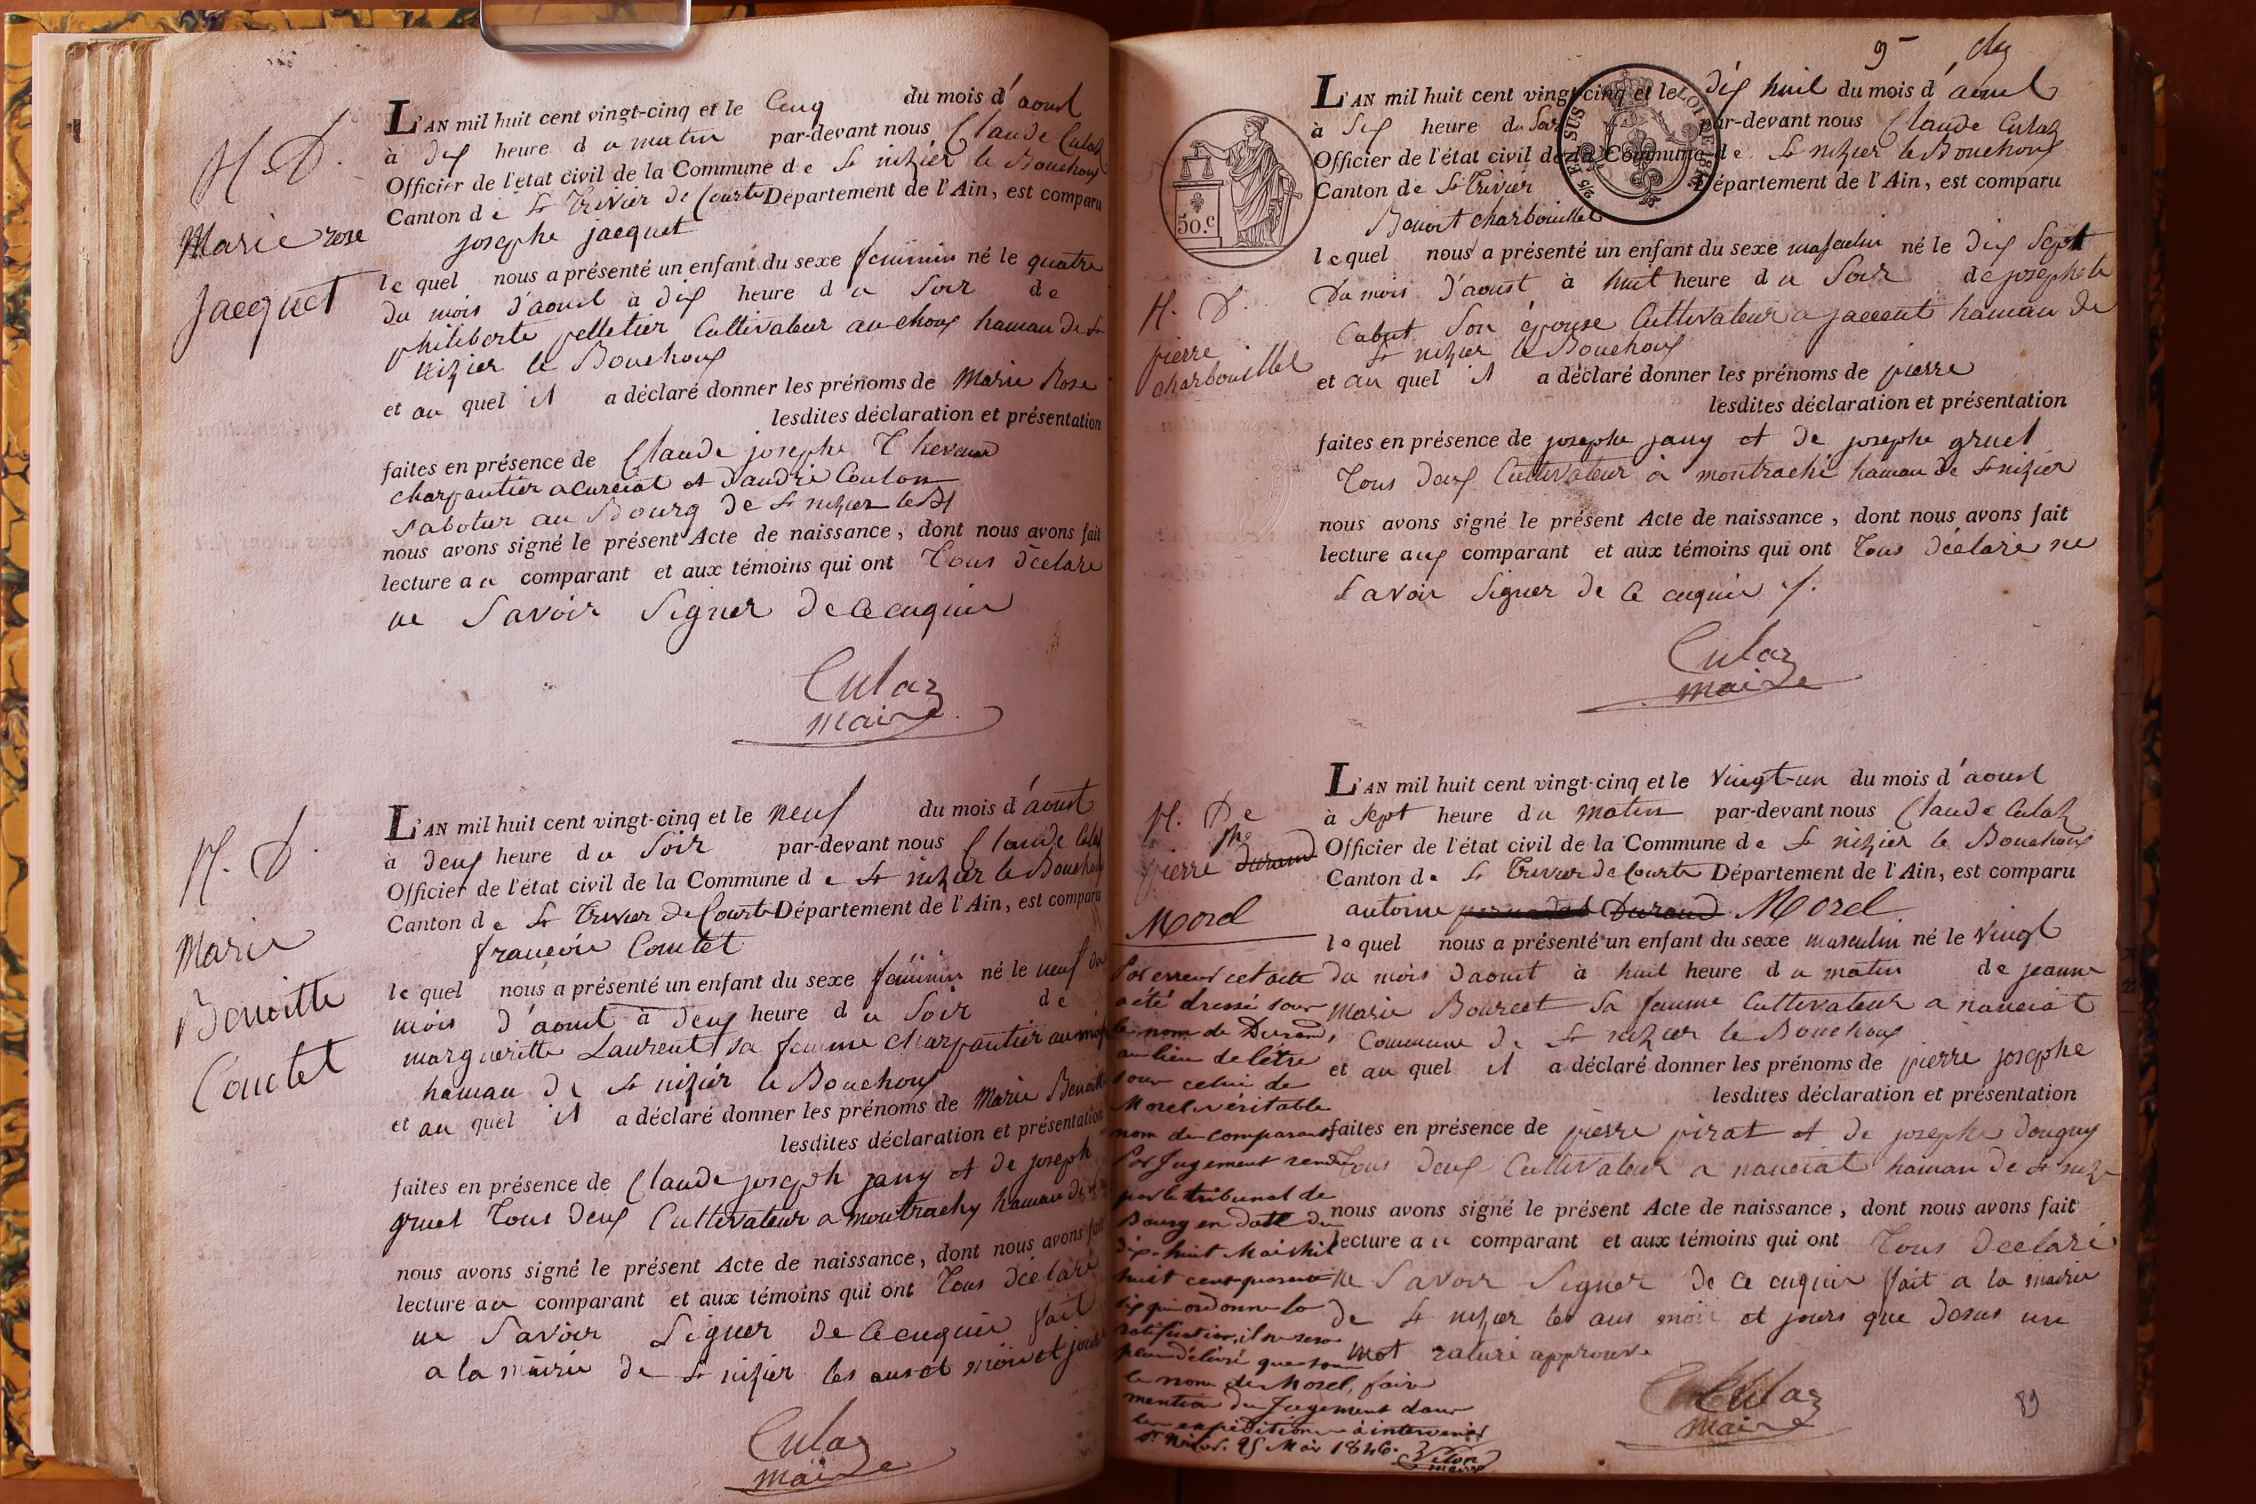 N. D.
Marie rose
Jacquet
L'AN mil huit cent vingt-cinq et le Cinq du mois d'aoust
à dix heure du matin par-devant nous Claude Culaz
Officier de l'état civil de la Commune de St nizier le Bouchoux
Canton de St Trivier de Courte Département de l'Ain, est comparu
josephe jacquet
lequel nous a présenté un enfant du sexe feminin né le quatre
du mois d'aoust à dix heure du Soir de
philiberte pelletier Cultivateur au choux hameau de St
nizier le Bouchoux
et au quel il a déclaré donner les prénoms de Marie Rose
lesdites déclaration et présentation
faites en présence de Claude josephe
charpantier a Curciat et d'andré Coulon
Sabotier au Bourg de St nizier le
nous avons signé le présent Acte de naissance, dont nous avons fait
lecture au comparant et aux témoins qui ont Tous déclaré
ne Savoir Signer de ce enquis
Culaz
maire
N. D.
Marie
Benoitte
Comtet
L'AN mil huit cent vingt-cinq et le neuf du mois d'aoust
à deux heure du Soir par-devant nous Claude Culaz
Officier de l'état civil de la Commune de St nizier le Bouchoux
Canton de St Trivier de Courte Département de l'Ain, est comparu
francois Comtet
lequel nous a présenté un enfant du sexe feminin né le neuf du
mois d'aoust à deux heure du Soir de
margueritte Laurent sa femme charpantier au
hameau de St nizier le Bouchoux
et au quel il a déclaré donner les prénoms de Marie Benoitte
lesdites déclaration et présentation
faites en présence de Claude joseph jany et de joseph
gruel Tous deux Cultivateur a montrachy hameau de
nous avons signé le présent Acte de naissance, dont nous avons fait
lecture au comparant et aux témoins qui ont Tous déclaré
ne Savoir Signer de ce enquis fait
a la mairie de St nizier les ans et mois et jour
Culaz
maire
9
50.c
SUS
LOI DE 1816
N. D.
pierre
charbouillet
L'AN mil huit cent vingt-cinq et le dix huit du mois d'aoust
à Six heure du Soir par-devant nous Claude Culaz
Officier de l'état civil de la Commune de St nizier le Bouchoux
Canton de St Trivier Département de l'Ain, est comparu
Benoit charbouillet
lequel nous a présenté un enfant du sexe masculin né le dix Sept
Du mois d'aoust à huit heure du Soir de josephete
Cabut Son épouse Cultivateur a jacent hameau de
St nizier le Bouchoux
et au quel il a déclaré donner les prénoms de pierre
lesdites déclaration et présentation
faites en présence de josephe jany et de josephe gruel
Tous deux Cultivateur à montraché hameau de St nizier
nous avons signé le présent Acte de naissance, dont nous avons fait
lecture aux comparant et aux témoins qui ont Tous déclaré ne
Savoir Signer de ce enquis
Culaz
maire
N. De
jph
pierre Durand
Morel
L'AN mil huit cent vingt-cinq et le Vingt-un du mois d'aoust
à Sept heure du matin par-devant nous Claude Culaz
Officier de l'état civil de la Commune de St nizier le Bouchoux
Canton de St Trivier de Courte Département de l'Ain, est comparu
antoine Durand Morel
lequel nous a présenté un enfant du sexe masculin né le Vingt
du mois d'aoust à huit heure du matin de jeanne
Marie Bourcet Sa femme Cultivateur a nanciat
Commune de St nizier le Bouchoux
et au quel il a déclaré donner les prénoms de pierre josephe
lesdites déclaration et présentation
faites en présence de pierre pirat et de josephe donguy
Tous deux Cultivateur a nanciat hameau de St nizie
nous avons signé le présent Acte de naissance, dont nous avons fait
lecture au comparant et aux témoins qui ont Tous déclaré
ne Savoir Signer de ce enquis fait a la mairie
de St nizier les ans mois et jours que desus un
mot raturé approuvé
Culaz
maire
Par erreur cet acte
a été dressé sous
le nom de Durand,
au lieu de l'être
sous celui de
Morel véritable
nom du comparant.
Par Jugement rendu
par le tribunal de
Bourg en date du
dix-huit Mai mil
huit cent quarante
six qui ordonne la
ratification, il ne sera
plus délivré que sous
le nom de Morel, faire
mention du Jugement dans
les expéditions à intervenir
St Nizier. 25 Mai 1846.
maire
89